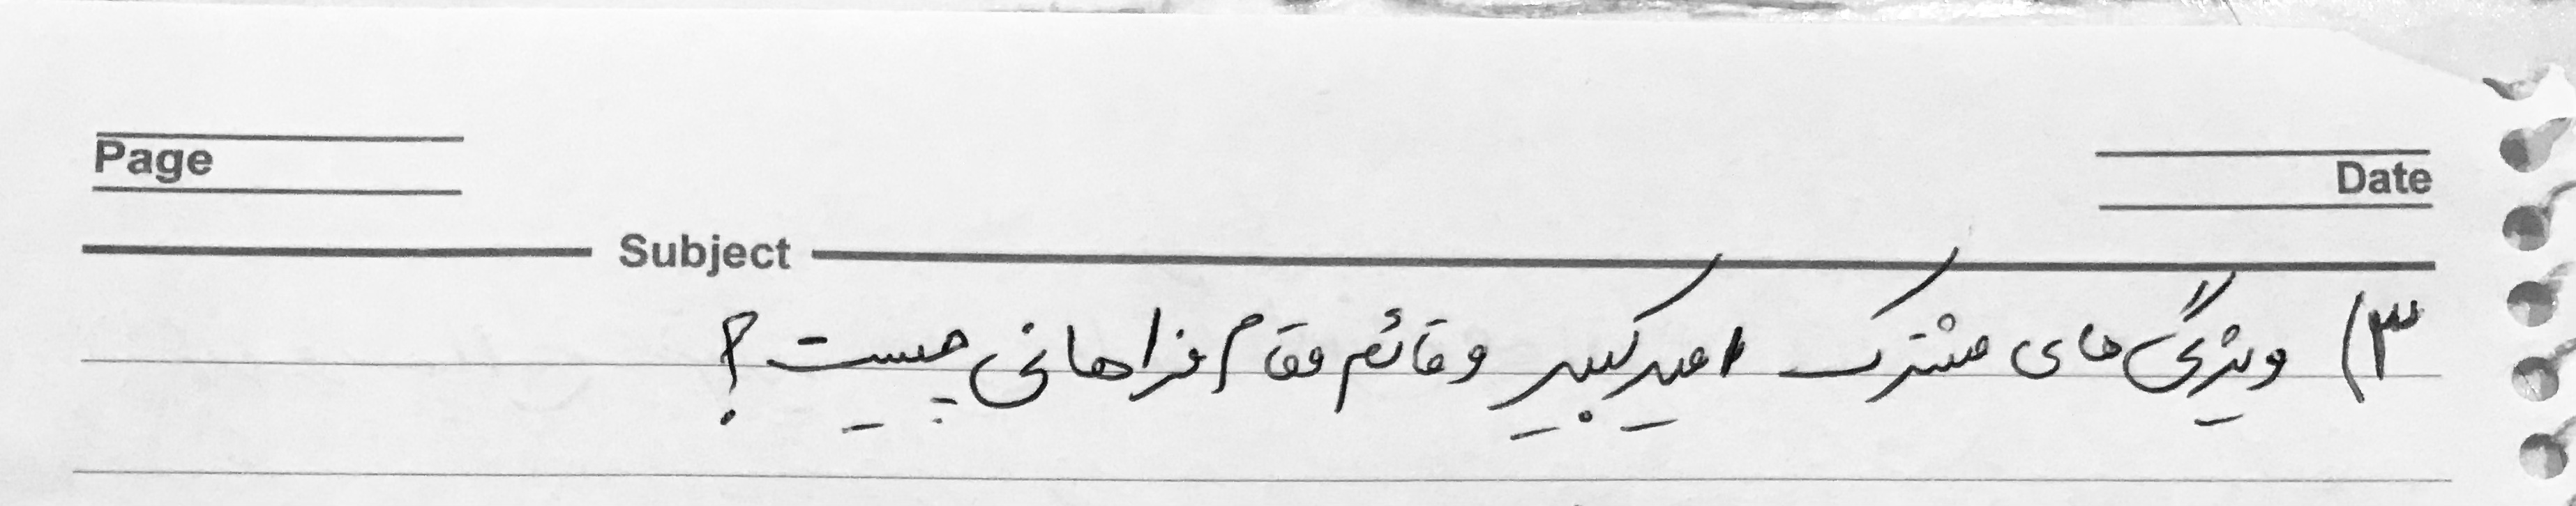 Page
Date
Subject
۳) ویژگی های مشترک امیرکبیر و قائم مقام فراهانی چیست؟